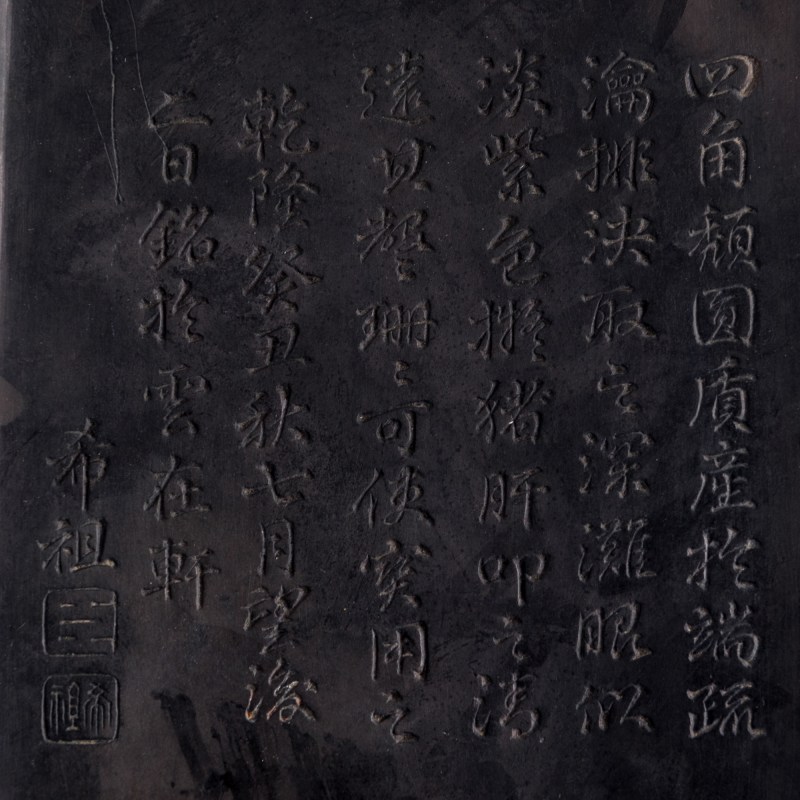 四角頹圓質產於端疏
瀹排決取之深灘眼似
淡紫色擬猪肝叩之清
遠其聲珊〻可使寳用之
乾隆癸丑秋七月望後
二日銘於雲在軒
希祖
希祖